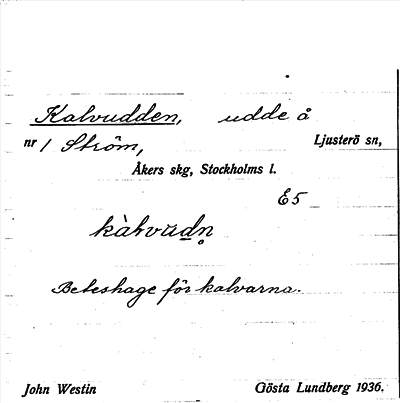 Kalvudden, udde å
nr 1 Ström, Ljusterö sn,
Åkers skg, Stockholms l.
E5
kàlvudn̥
Beteshage för kalvarna.
John Westin Gösta Lundberg 1936.